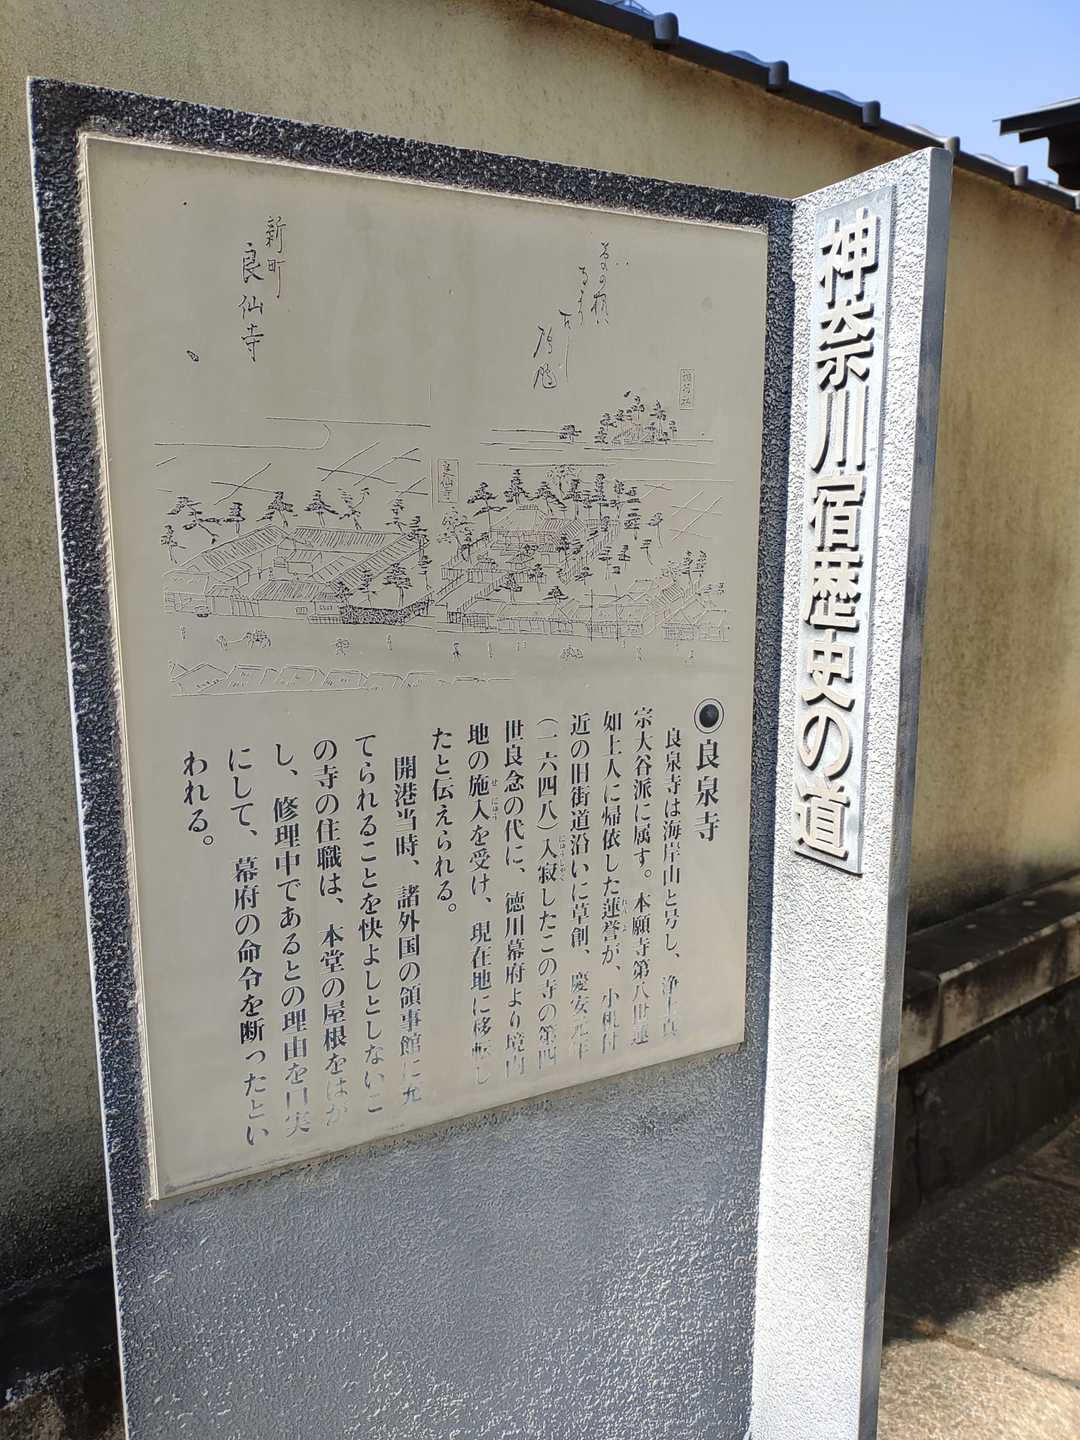 神奈川宿歴史の道
新町
良仙寺
良仙寺
良泉寺
良泉寺は海岸山と号し、浄土真
宗大谷派に属す。本願寺第八世蓮
如上人に帰依した蓮誉が、小机付
近の旧街道沿いに草創、慶安元年
(一六四八)入寂したこの寺の第四
世良念の代に、徳川幕府より境内
地の施入を受け、現在地に移転し
たと伝えられる。
開港当時、諸外国の領事館に充
てられることを快よしとしないこ
の寺の住職は、本堂の屋根をはが
し、修理中であるとの理由を口実
にして、幕府の命令を断ったとい
われる。